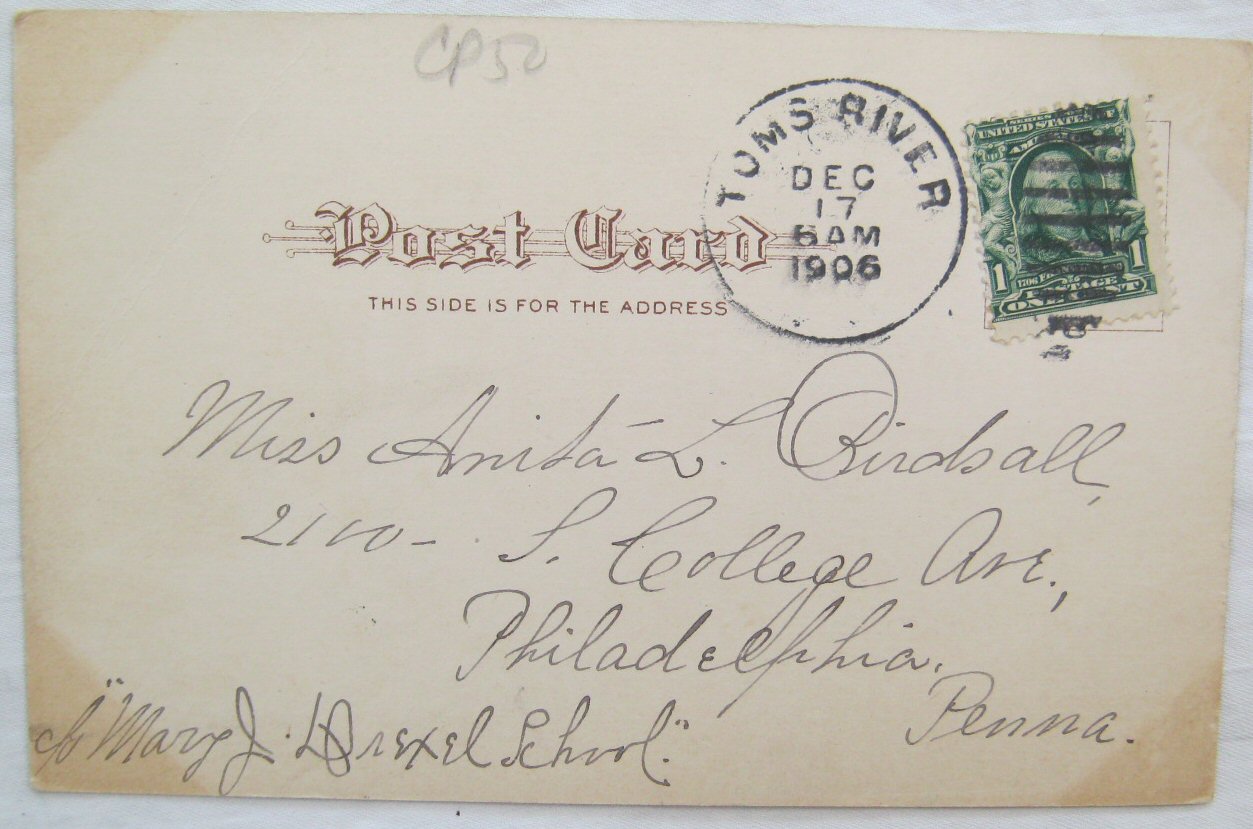 CP50
TOMS RIVER
DEC
17
6 AM
1906
SERIES
UNITED STATES OF
AMERICA
1 1
POSTAGE
ONE CENT
Post Card
THIS SIDE IS FOR THE ADDRESS
Miss Anita L. Birdsall,
2100 - S. College Ave.,
Philadelphia.
Penna.
c/o "Mary J. Drexel School."